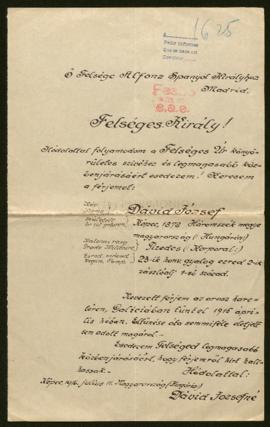 1625
Ő Felsége Alfonz Spanyol Királyhoz
Madrid.
Felséges Király!
Hódolattal folyamodom a Felséges Úr könyö-
rületes szívéhez és legmagasabb köz-
benjárásáért esedezem! Keresem
a férjemet:
Dávid József
Köpec, 1878 Háromszék megye
Magyarország (Hungária)
Tizedes (Korporal:)
23-ik honv. gyalog ezred 2-ik
zászlóalj 1-ső század.
Nevezett férjem az orosz harc-
téren, Galiciában tűnt el 1915 áp-
rilis hóban. Eltűnése óta semmiféle életjelt
nem adott magáról.
Esedezem Felséged legmagasabb
közbenjárásáért, hogy férjemről hírt hall-
hassak.
Hódolattal:
Köpec, 1916. július 11. Magyarország (Hungária)
Dávid Józsefné